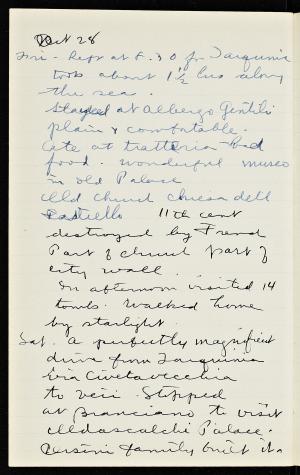 Oct 28
Fri - Left at 8.30 for Tarquinia
took about 1½ hrs along
the sea.
Stayed at Albergo Gentili
plain & comfortable.
Ate at trattoria - bad
food. Wonderful museo
in old Palace
Old Church Chiesa dell
Castello 11th cent
destroyed by French
Part of church part of
city wall.
In afternoon visited 14
tombs. Walked home
by starlight
Sat. A perfectly magnificent
drive from Tarquinia
via Civetavecchia
to Veii. Stopped
at Branciano to visit
Oldascalchi Palace.
Orsini family built it.